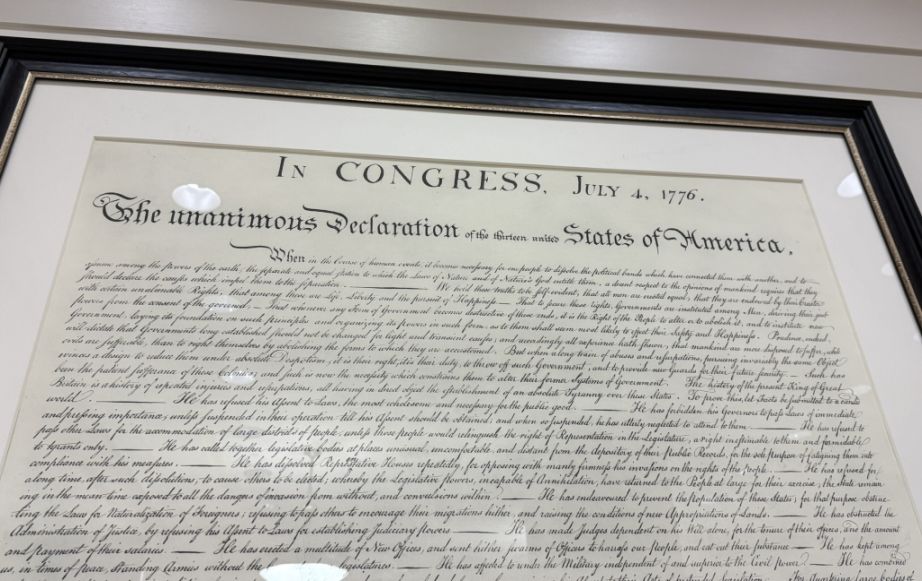 IN CONGRESS, JULY 4, 1776.
The unanimous Declaration of the thirteen united States of America,
When in the Course of human events, it becomes necessary for one people to dissolve the political bands which have connected them with another, and to
assume among the powers of the earth, the separate and equal station to which the Laws of Nature and of Nature's God entitle them, a decent respect to the opinions of mankind requires that they
should declare the causes which impel them to the separation. We hold these truths to be self-evident, that all men are created equal, that they are endowed by their Creator
with certain unalienable Rights, that among these are Life, Liberty and the pursuit of Happiness. — That to secure these rights, Governments are instituted among Men, deriving their just
powers from the consent of the governed, — That whenever any Form of Government becomes destructive of these ends, it is the Right of the People to alter or to abolish it, and to institute new
Government, laying its foundation on such principles and organizing its powers in such form, as to them shall seem most likely to effect their Safety and Happiness. Prudence, indeed,
will dictate that Governments long established should not be changed for light and transient causes; and accordingly all experience hath shewn, that mankind are more disposed to suffer, while
evils are sufferable, than to right themselves by abolishing the forms to which they are accustomed. But when a long train of abuses and usurpations, pursuing invariably the same Object
evinces a design to reduce them under absolute Despotism, it is their right, it is their duty, to throw off such Government, and to provide new Guards for their future security. — Such has
been the patient sufferance of these Colonies; and such is now the necessity which constrains them to alter their former Systems of Government. The history of the present King of Great
Britain is a history of repeated injuries and usurpations, all having in direct object the establishment of an absolute Tyranny over these States. To prove this, let Facts be submitted to a candid
world. He has refused his Assent to Laws, the most wholesome and necessary for the public good. He has forbidden his Governors to pass Laws of immediate
and pressing importance, unless suspended in their operation till his Assent should be obtained; and when so suspended, he has utterly neglected to attend to them. He has refused to
pass other Laws for the accommodation of large districts of people, unless those people would relinquish the right of Representation in the Legislature, a right inestimable to them and formidable
to tyrants only. He has called together legislative bodies at places unusual, uncomfortable, and distant from the depository of their Public Records, for the sole purpose of fatiguing them into
compliance with his measures. He has dissolved Representative Houses repeatedly, for opposing with manly firmness his invasions on the rights of the people. He has refused for
a long time, after such dissolutions, to cause others to be elected; whereby the Legislative powers, incapable of Annihilation, have returned to the People at large for their exercise; the State remain
ing in the mean time exposed to all the dangers of invasion from without, and convulsions within. He has endeavoured to prevent the population of these States; for that purpose obstruc
ting the Laws for Naturalization of Foreigners; refusing to pass others to encourage their migrations hither, and raising the conditions of new Appropriations of Lands. He has obstructed the
Administration of Justice, by refusing his Assent to Laws for establishing Judiciary powers. He has made Judges dependent on his Will alone, for the tenure of their offices, and the amount
and payment of their salaries. He has erected a multitude of New Offices, and sent hither swarms of Officers to harass our People, and eat out their substance. He has kept among
us, in times of peace, Standing Armies without the legislatures. He has affected to render the Military independent of and superior to the Civil power. He has combined